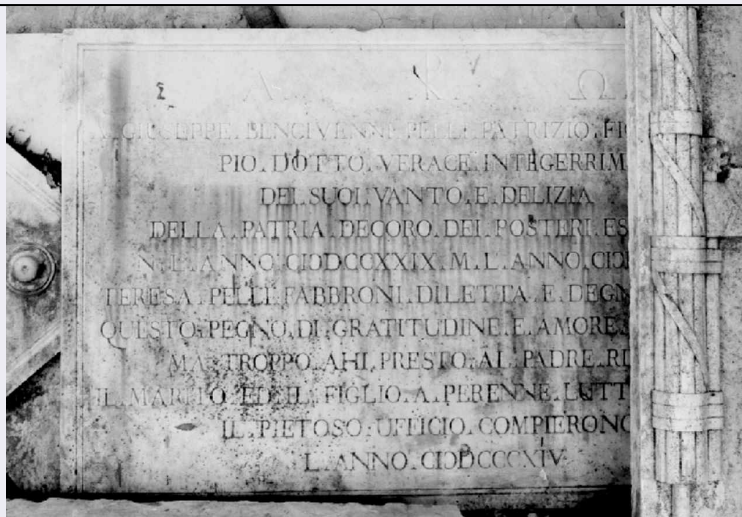 Α ☧ Ω
A. GIUSEPPE. BENCIVENNI. PELLI. PATRIZIO. FI
PIO. DOTTO. VERACE. INTEGERRIM
DEI. SUOI. VANTO. E. DELIZIA
DELLA. PATRIA. DECORO. DEI. POSTERI. ES
N. L. ANNO. CIƆDCCXXIX. M. L. ANNO. CIƆ
TERESA. PELLI. FABBRONI. DILETTA. E. DEGN
QUESTO. PEGNO. DI. GRATITUDINE. E. AMORE.
MA. TROPPO. AHI. PRESTO. AL. PADRE. RI
IL. MARITO. ED. IL. FIGLIO. A. PERENNE. LUTT
IL. PIETOSO. UFFICIO. COMPIERONO
L. ANNO. CIƆDCCCXIV